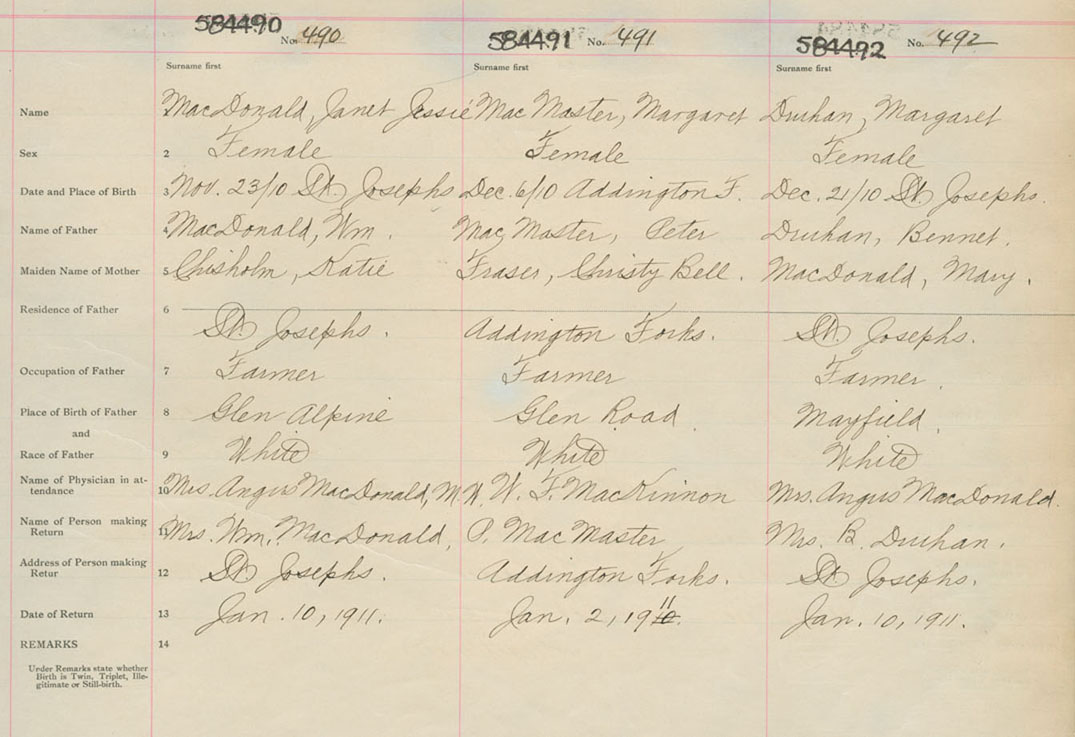 584490 No. 490 584491 No. 491 584492 No. 492
Surname first Surname first Surname first
Name 1 MacDonald, Janet Jessie MacMaster, Margaret Durhan, Margaret
Sex 2 Female Female Female
Date and Place of Birth 3 Nov. 23/10 St. Josephs Dec. 6/10 Addington F. Dec. 21/10 St. Josephs.
Name of Father 4 MacDonald, Wm. MacMaster, Peter Durhan, Bennet.
Maiden Name of Mother 5 Chisholm, Katie Fraser, Christy Bell. MacDonald, Mary.
Residence of Father 6
St. Josephs. Addington Forks. St. Josephs.
Occupation of Father 7 Farmer Farmer Farmer.
Place of Birth of Father 8 Glen Alpine Glen Road. Mayfield.
and
Race of Father 9 White White White
Name of Physician in at-
tendance 10 Mrs. Angus MacDonald, M.W. W. F. MacKinnon Mrs. Angus MacDonald.
Name of Person making
Return 11 Mrs. Wm. MacDonald, P. MacMaster Mrs. B. Durhan.
Address of Person making
Retur 12 St Josephs. Addington Forks. St Josephs.
Date of Return 13 Jan. 10, 1911. Jan. 2, 1911. Jan. 10, 1911.
REMARKS 14
Under Remarks state whether
Birth is Twin, Triplet, Ille-
gitimate or Still-birth.